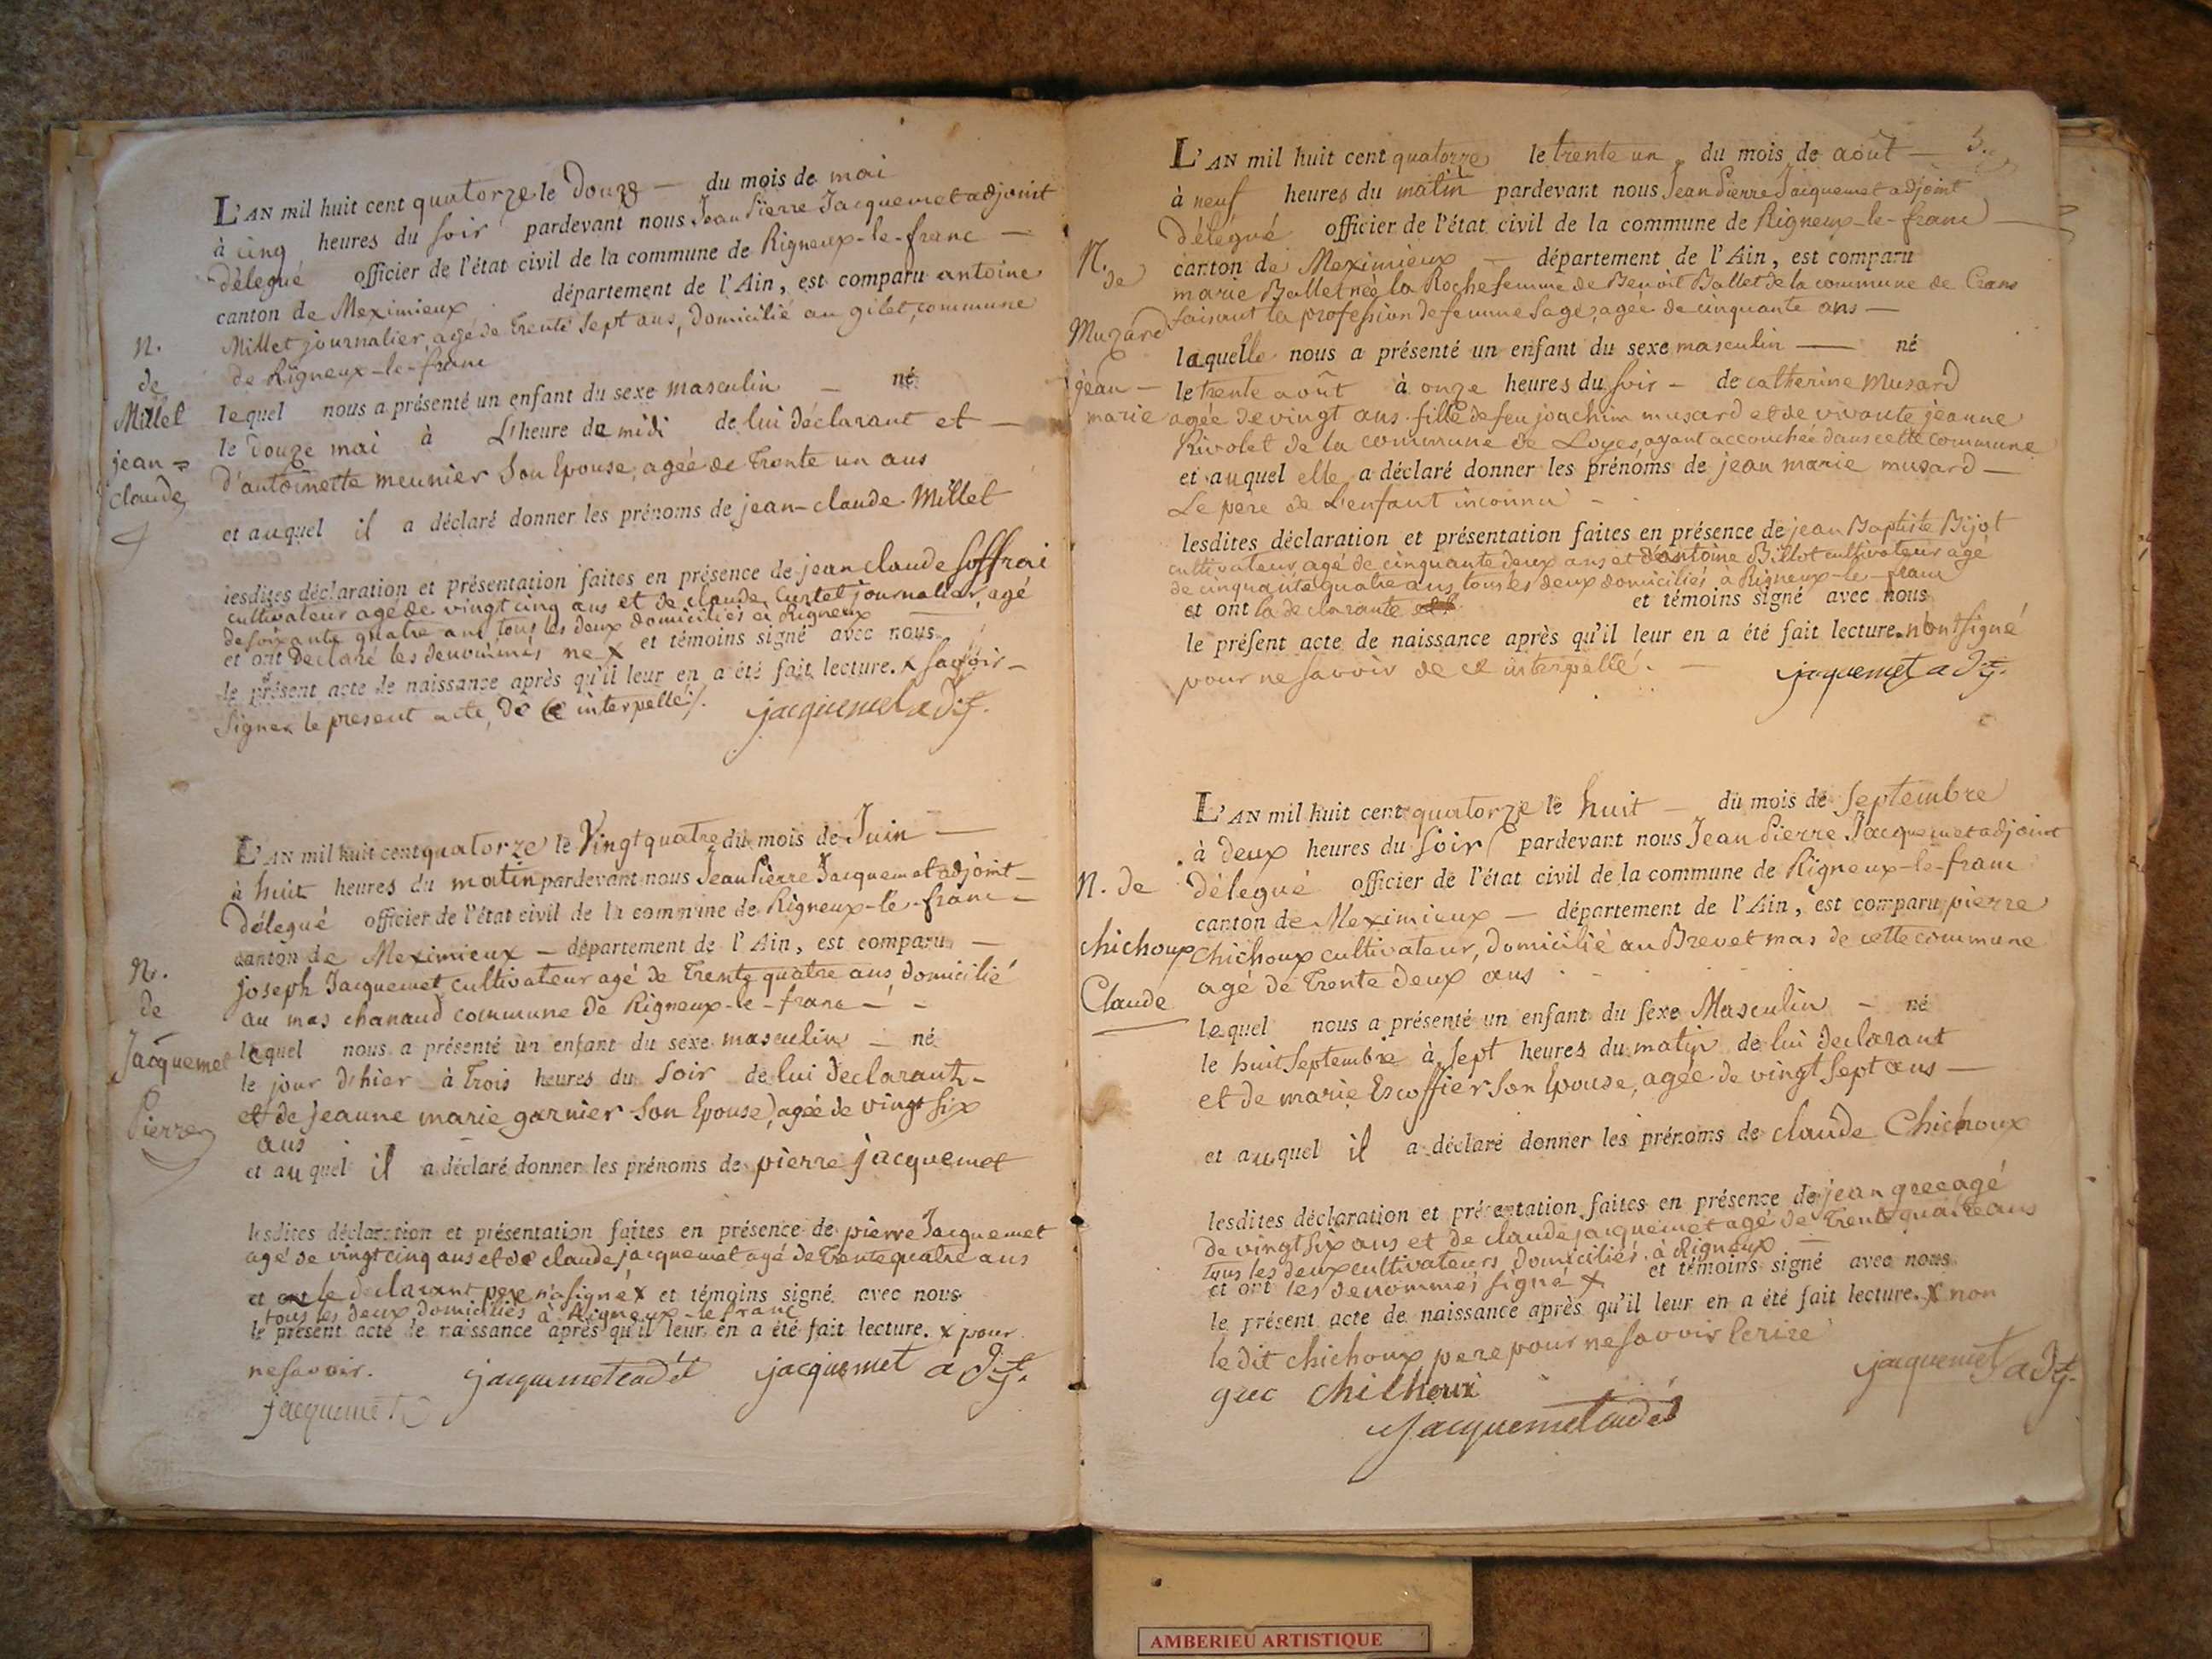 L'AN mil huit cent quatorze le douze — du mois de mai
à cinq heures du soir pardevant nous Jean Pierre Jacquemet adjoint
délegué officier de l'état civil de la commune de Rigneux-le-franc —
canton de Meximieux département de l'Ain, est comparu antoine
Millet journalier, agé de trente sept ans, domicilié au gilet, commune
de Rigneux-le-franc
n.
de
Millet
jean =
claude
lequel nous a présenté un enfant du sexe masculin — né
le douze mai à L'heure de midi de lui déclarant et —
d'antoinette meunier son Epouse, agée de trente un ans
et auquel il a déclaré donner les prénoms de jean-claude Millet
lesdites déclaration et présentation faites en présence de jean claude Soffrai
cultivateur agé de vingt cinq ans et de claude Curtet journalier, agé
de soixante quatre ans, tous les deux domiciliés à Rigneux
et ont declaré les denommés ne x et témoins signé avec nous
le présent acte de naissance après qu'il leur en a été fait lecture. x savoir —
signer le present acte, de ce interpellé/.
jacquemet adj.
L'AN mil huit cent quatorze le Vingt quatre du mois de Juin —
à huit heures du matin pardevant nous Jean Pierre Jacquemet adjoint —
délegué officier de l'état civil de la commune de Rigneux-le-franc —
canton de Meximieux — département de l'Ain, est comparu —
joseph Jacquemet cultivateur agé de trente quatre ans domicilié
au mas chanaud commune de Rigneux-le-franc — -
N.
de
Jacquemet
Pierre
lequel nous a présenté un enfant du sexe masculin — né
le jour d'hier à trois heures du soir de lui declarant -
et de jeanne marie garnier son Epouse, agée de vingt six
ans
et auquel il a déclaré donner les prénoms de pierre jacquemet
lesdites déclaration et présentation faites en présence de pierre Jacquemet
agé de vingt cinq ans et de claude jacquemet agé de trente quatre ans
et ont le declarant pere n'a signé x et témoins signé avec nous
tous les deux domiciliés à Rigneux-le franc
le présent acte de naissance après qu'il leur en a été fait lecture. x pour
ne savoir.
jacquemet cadet jacquemet adj.
jacquemet
5.
L'AN mil huit cent quatorze le trente un du mois de août —
à neuf heures du matin pardevant nous Jean Pierre Jacquemet adjoint
délégué officier de l'état civil de la commune de Rigneux-le-franc —
canton de Meximieux — département de l'Ain, est comparu
marie Ballet née la Roche femme de Benoit Ballet de la commune de Crans
faisant la profession de femme sage, agée de cinquante ans —
N.
de
Muzard
jean —
marie
laquelle nous a présenté un enfant du sexe masculin — né
le trente août à onze heures du soir — de catherine musard
agée de vingt ans fille de feu joachim musard et de vivante jeanne
Rivolet de la commune de Loyes, ayant accouchée dans cette commune
et auquel elle a déclaré donner les prénoms de jean marie musard —
Le pere de L'enfant inconnu -
lesdites déclaration et présentation faites en présence de jean Baptiste Bijot
cultivateur agé de cinquante deux ans et d'antoine Billot cultivateur agé
de cinquante quatre ans, tous les deux domiciliés à Rigneux-le-franc
et ont la declarante et témoins signé avec nous
le présent acte de naissance après qu'il leur en a été fait lecture. n'ont signé
pour ne savoir de ce interpellé. —
jacquemet adj.
L'AN mil huit cent quatorze le huit — du mois de Septembre
à deux heures du soir pardevant nous Jean Pierre Jacquemet adjoint
délegué officier de l'état civil de la commune de Rigneux-le-franc
canton de Meximieux — département de l'Ain, est comparu pierre
chichoux cultivateur, domicilié au Brevet mas de cette commune
agé de trente deux ans
N. de
chichoux
Claude
lequel nous a présenté un enfant du sexe Masculin — né
le huit Septembre à sept heures du matin de lui declarant
et de marie Escoffier son Epouse, agée de vingt sept ans —
et auquel il a déclaré donner les prénoms de claude Chichoux
lesdites déclaration et présentation faites en présence de jean grec agé
de vingt six ans et de claude jacquemet agé de trente quatre ans
tous les deux cultivateurs domiciliés à Rigneux —
et ont les denommés signé x et témoins signé avec nous
le présent acte de naissance après qu'il leur en a été fait lecture. x non
le dit chichoux pere pour ne savoir Ecrire
grec chichoux
jacquemet adj.
Jacquemet cadet
AMBERIEU ARTISTIQUE